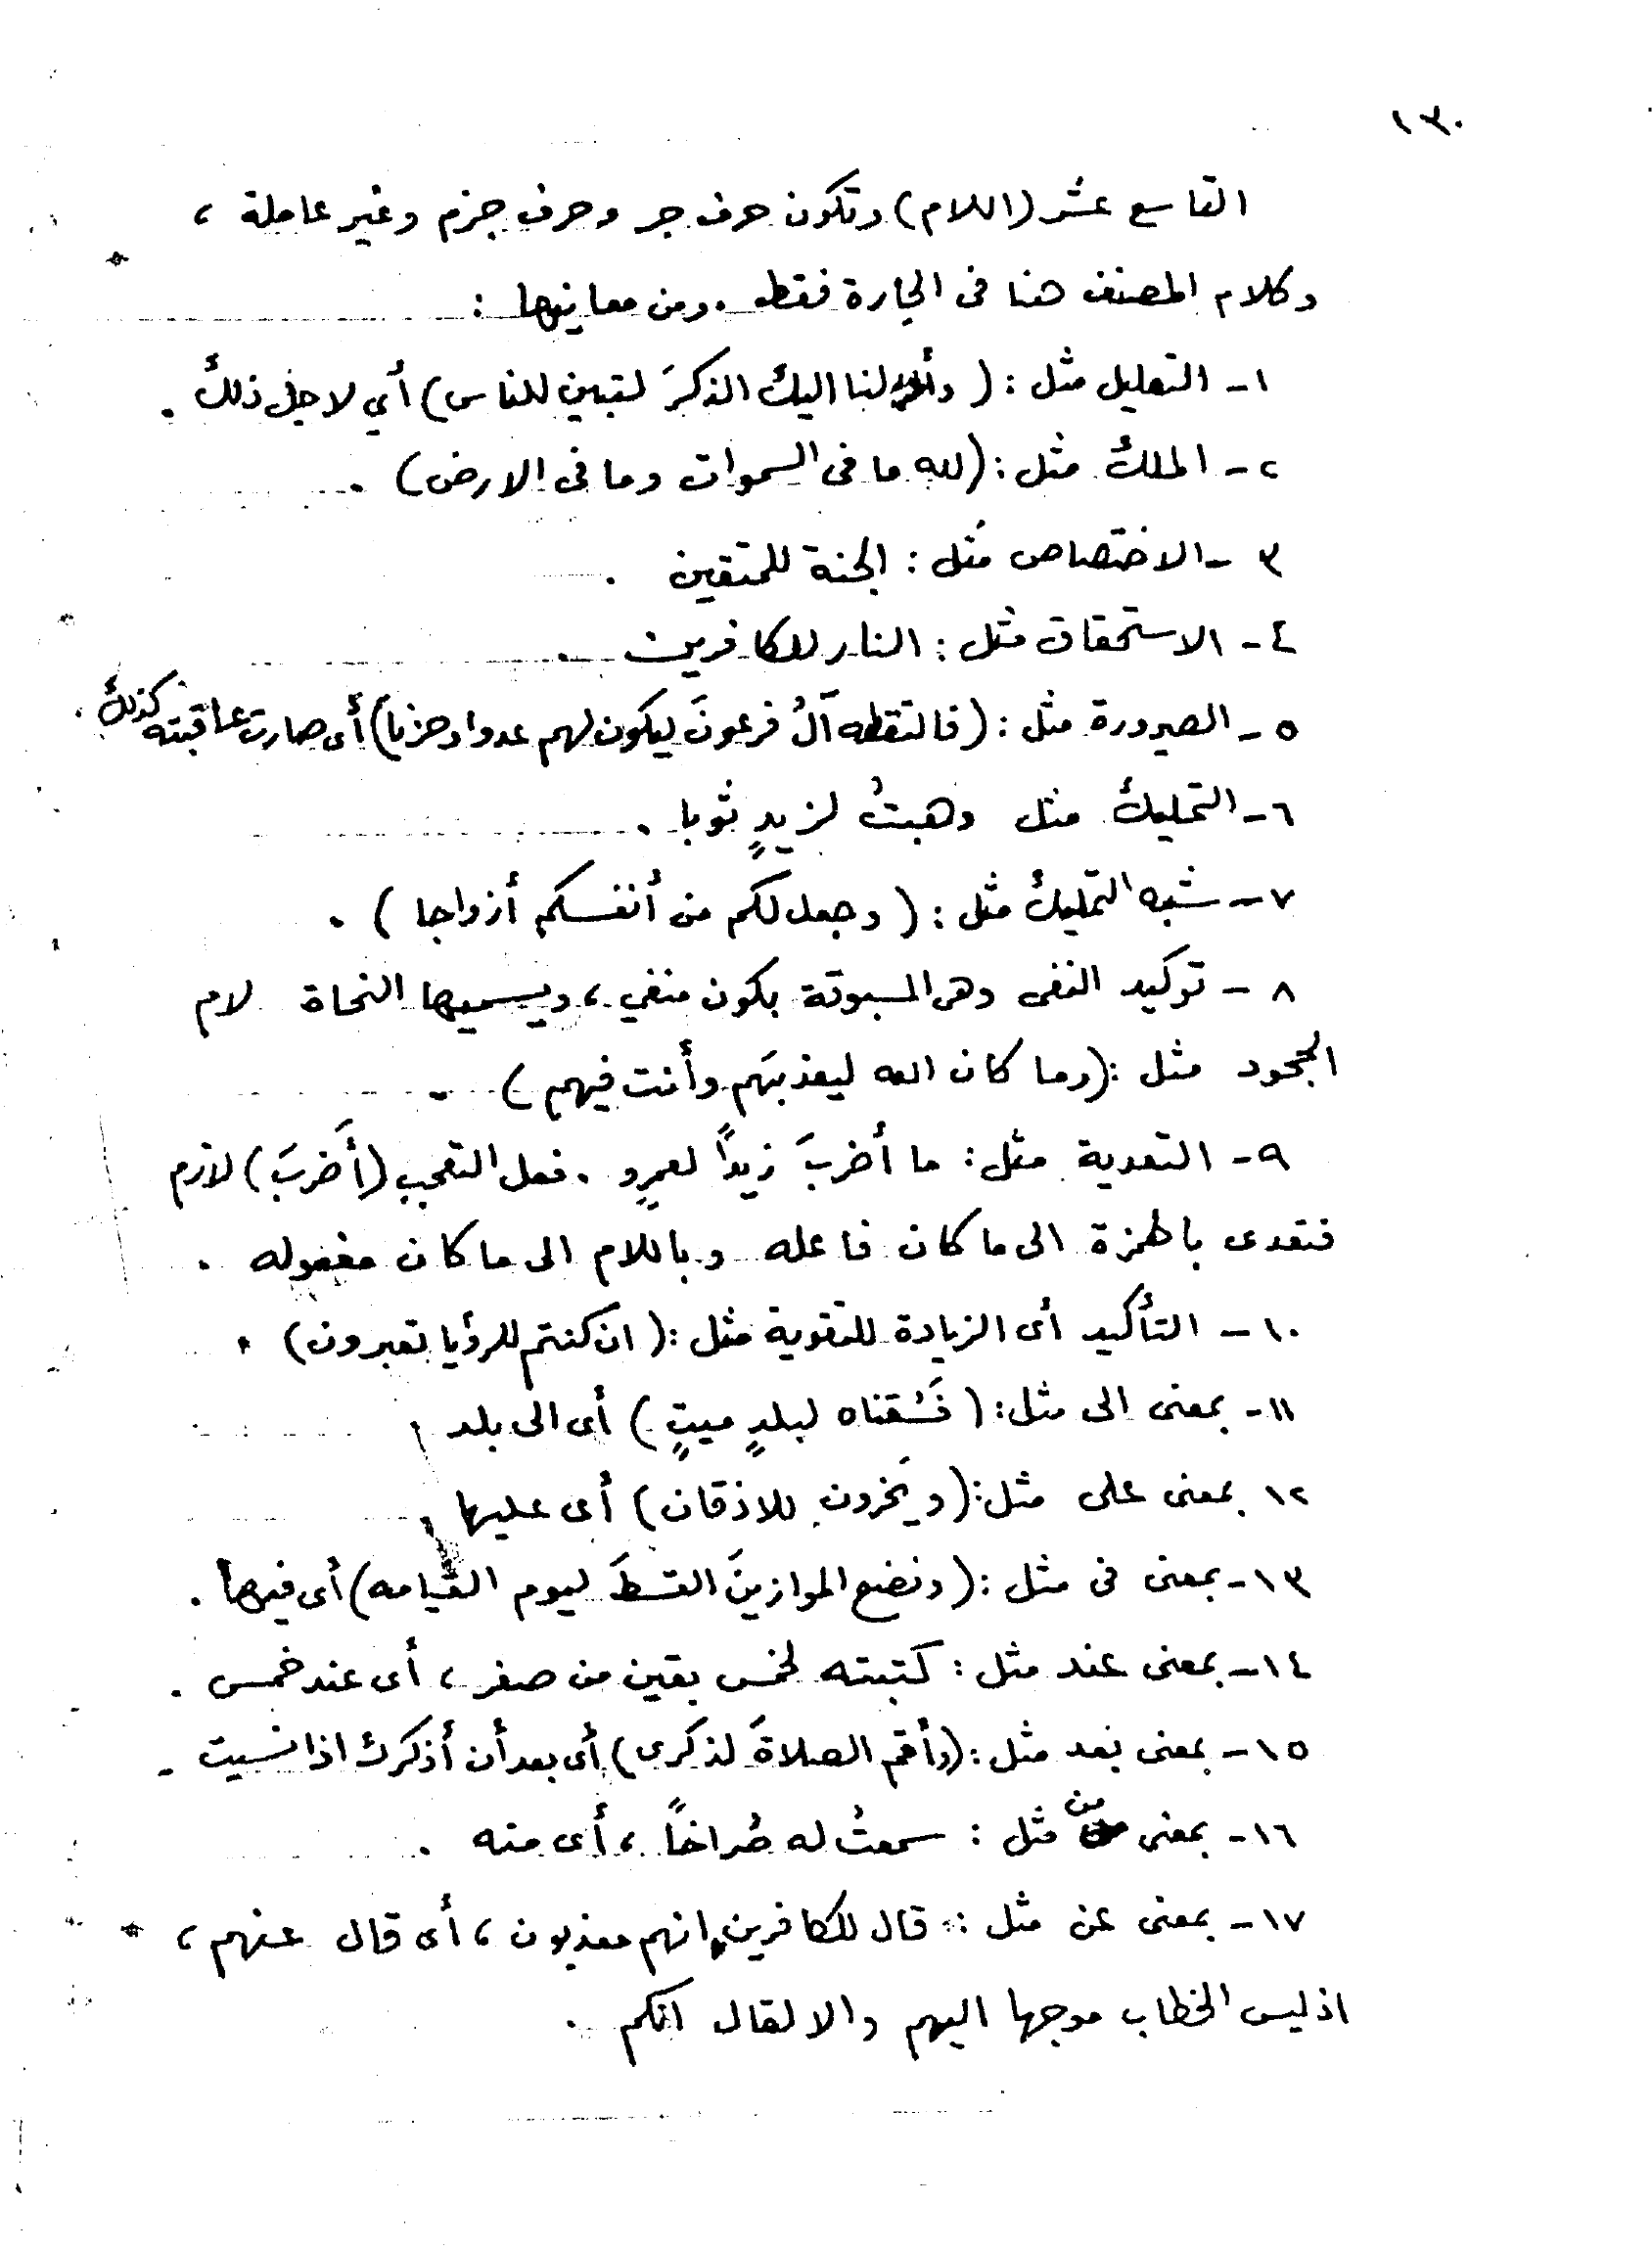 ١٣٠
التاسع عشر (اللام) وتكون حرف جر وحرف جزم وغير عاملة ،
وكلام المصنف هنا فى الجارة فقط . ومن معانيها :
١ - التعليل مثل : ( وأنزلنا اليك الذكرَ لتبين للناس) أي لاجل ذلك .
٢ - الملك مثل : (لله ما فى السموات وما فى الارض) .
٣ - الاختصاص مثل : الجنة للمتقين .
٤ - الاستحقاق مثل : النار للكافرين .
٥ - الصيرورة مثل : (فالتقطه آلُ فرعونَ ليكون لهم عدوا وحزنا) أى صارت عاقبته كذلك .
٦ - التمليك مثل وهبتُ لزيدٍ ثوبا .
٧ - شبه التمليك مثل : ( وجعل لكم من أنفسكم أزواجا ) .
٨ - توكيد النفى وهى المسبوقة بكون منفي ، ويسميها النحاة لام
الجحود مثل : (وما كان الله ليعذبَهم وأنت فيهم ) .
٩ - التعدية مثل : ما أضربَ زيداً لعمرٍو . فعل التعجب (أَضربَ) لازم
فتعدى بالهمزة الى ما كان فاعله وباللام الى ما كان مفعوله .
١٠ - التأكيد أى الزيادة للتقوية مثل : ( ان كنتم للرؤيا تعبرون) .
١١ - بمعنى الى مثل : ( فَسُقناه لبلدٍ ميتٍ ) أى الى بلد .
١٢ بمعنى على مثل : (ويَخرون للاذقان) أى عليها .
١٣ - بمعنى فى مثل : (ونضع الموازينَ القسطَ ليوم القيامه) أى فيها .
١٤ - بمعنى عند مثل : كتبته لخمس بقين من صفر ، أى عند خمس .
١٥ - بمعنى بعد مثل : (وأقم الصلاةَ لذكرى) أى بعد أن أذكرك اذا نسيت .
١٦ - بمعنى من مثل : سمعتُ له صُراخاً ، أى منه .
١٧ - بمعنى عن مثل : قال للكافرين انهم معذبون ، أى قال عنهم ،
اذ ليس الخطاب موجها اليهم والا لقال انكم .